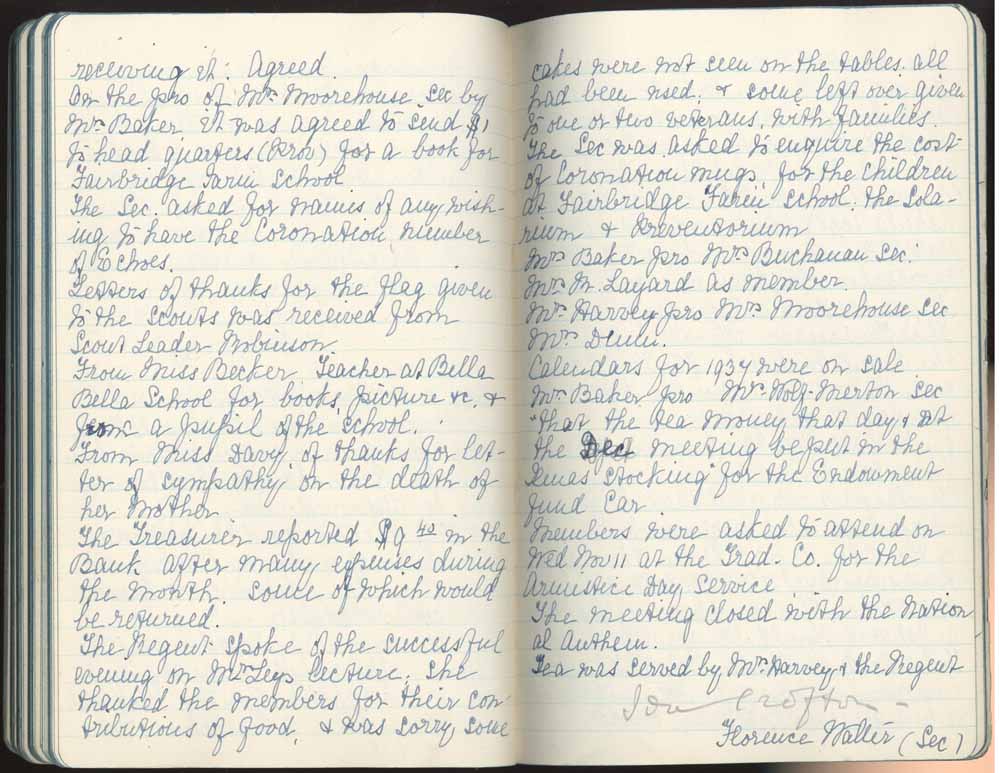 receiving it. Agreed.
On the pro of Mrs Moorehouse, sec by
Mrs Baker it was agreed to send $1
to head quarters (Prov) for a book for
Fairbridge Farm School
The Sec. asked for names of any wish-
ing to have the Coronation number
of Echoes.
Letters of thanks for the flag given
to the scouts was received from
Scout Leader Robinson.
From Miss Becker, Teacher at Bella
Bella School for books, picture &c. &
from a pupil of the school.
From Miss Davy of thanks for let-
ter of sympathy on the death of
her Mother
The Treasurer reported $9 40 in the
Bank after many expenses during
the month. some of which would
be returned.
The Regent spoke of the successful
evening on Mr Leys lecture. She
thanked the members for their con-
tributions of food, & was sorry some
cakes were not seen on the tables. all
had been used. & some left over given
to one or two veterans, with families.
The Sec was asked to enquire the cost
of Coronation mugs, for the children
at Fairbridge Farm School. the Sola-
rium & Preventorium
Mrs Baker pro Mrs Buchanan Sec.
Mrs M. Layard as member.
Mrs Harvey pro Mrs Moorehouse Sec
Mrs
Calendars for 1937 were on sale
Mrs Baker pro Mrs Wolf-Merton sec
"that the tea money that day & at
the Dec meeting be put in the
Xmas stocking" for the Endowment
fund Car
Members were asked to attend on
Wed Nov 11 at the Trad. Co. for the
Armistice Day Service
The meeting closed with the Nation
al Anthem.
Tea was served by Mrs Harvey & the Regent
Crofton
Florence Walter (Sec)